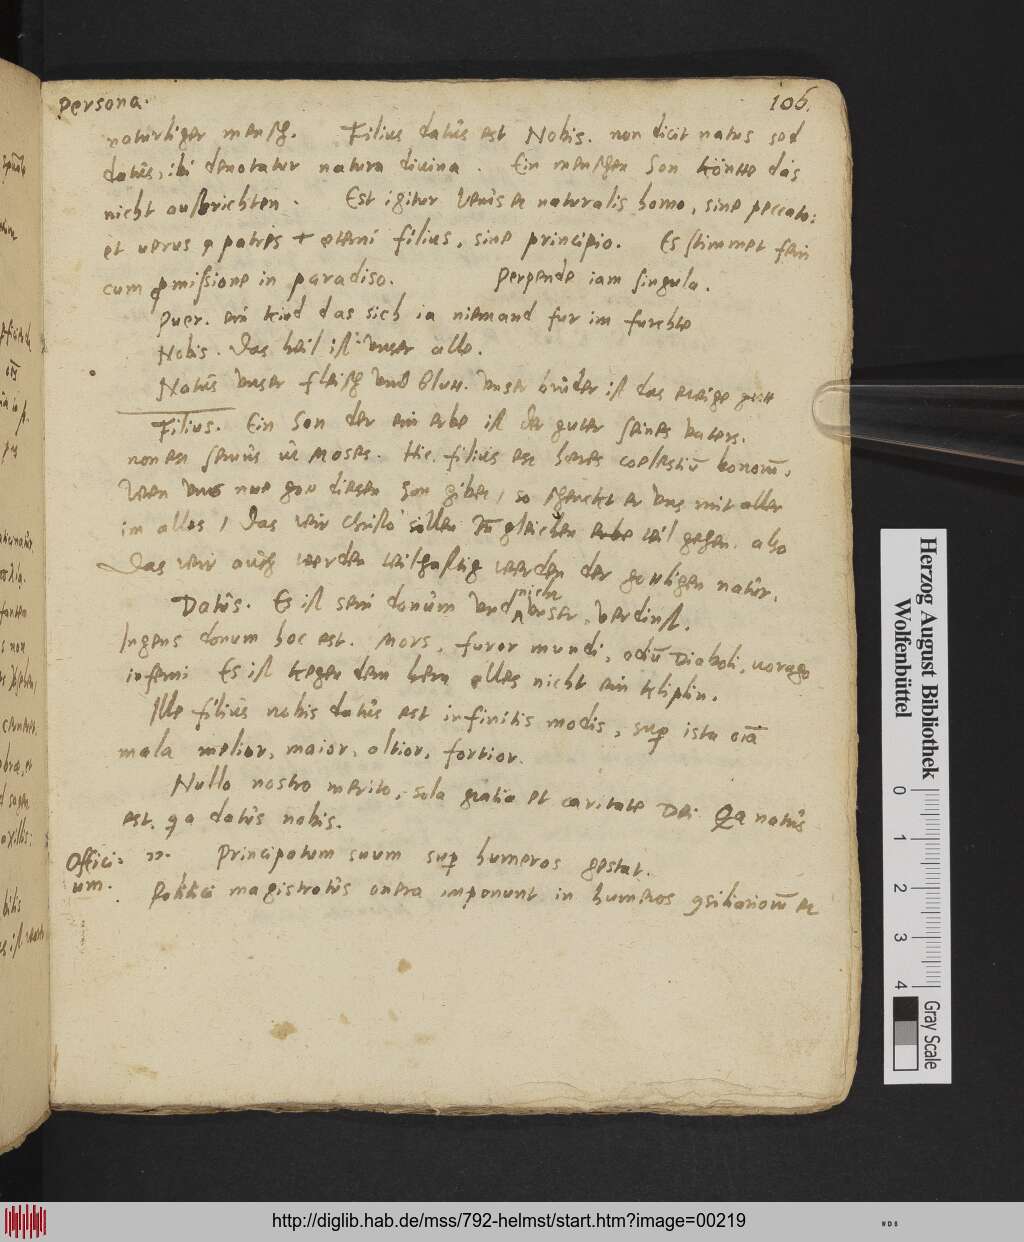 Persona.
106.
naturliger mensch. Filius datus est Nobis. non dicit natus sed
datus, ibi denotatur natura divina. Ein menschen Son könte das
nicht aussrichten. Est igitur verus et naturalis homo, sine peccato:
et verus patris eterni filius, sine principio. Es stimmet fein
cum pmissione in paradiso. Perpende iam singula.
Puer. ein kind das sich ia niemand fur im furchte
Nobis. Das heil ist unser alle.
Natus unser fleisch und blutt. unser brüder ist das ewige gutt
Filius. Ein Son der ein erbe ist der guter seines vaters.
non est servus ut Moses. Hic filius est heres coelestiū bonorū.
Wen uns nue gott diesen Son gibet, so schenckt er uns mit aller
im alles / Das wir Christo sollen zu gleichen erbe teil gehen. also
Das wir auch werden teilhaftig werden der gottligen natur.
Datus. Es ist sein donum und nicht unser verdinst.
Ingens donum hoc est. Mors, furor mundi, odiū Diaboli, vorago
inferni Es ist kegen dem hern alles nicht ein kliplin.
Ille filius nobis datus est infinitis modis, sup ista oīa
mala melior, maior, altior, fortior.
Nullo nostro merito, sola gratia et caritate Dei Qa natus
est. qa datus nobis.
Offici:
um.
Principatum suum sup humeros gestat.
Politici magistratus onera imponunt in humeros gsiliariorū et
Herzog August Bibliothek
Wolfenbüttel
0 1 2 3 4
Gray Scale
http://diglib.hab.de/mss/792-helmst/start.htm?image=00219